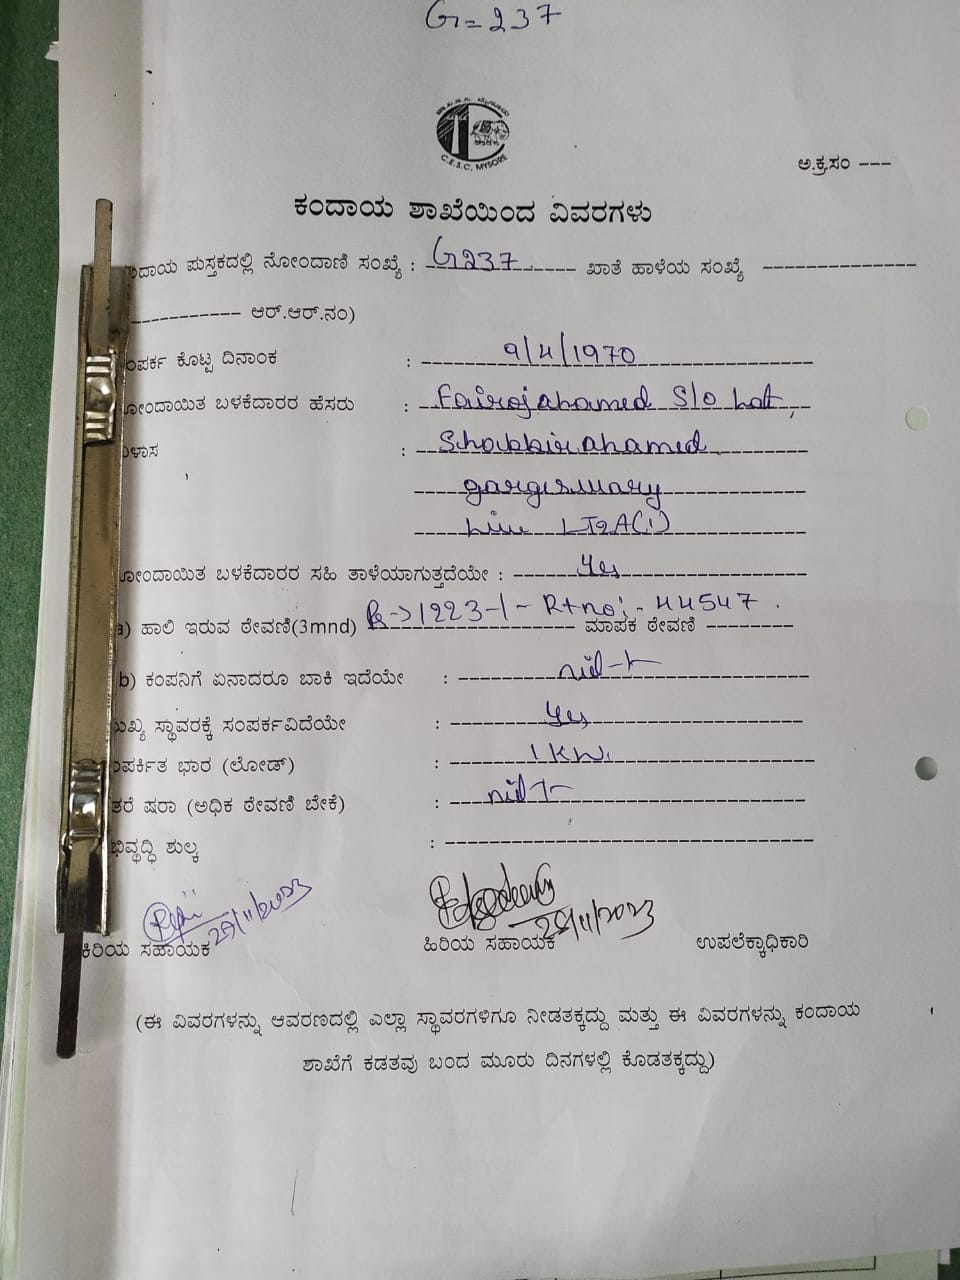 G=237
C.E.S.C, MYSORE
ಅ.ಕ್ರ.ಸಂ ---
ಕಂದಾಯ ಶಾಖೆಯಿಂದ ವಿವರಗಳು
ದಾಯ ಪುಸ್ತಕದಲ್ಲಿ ನೋಂದಾಣಿ ಸಂಖ್ಯೆ : G237 ಖಾತೆ ಹಾಳೆಯ ಸಂಖ್ಯೆ ---------------
----------- ಆರ್.ಆರ್.ನಂ)
ಂಪರ್ಕ ಕೊಟ್ಟ ದಿನಾಂಕ : 9/4/1970
ೋಂದಾಯಿತ ಬಳಕೆದಾರರ ಹೆಸರು : Fairojahamed S/o Lat,
ಳಾಸ : Shabbir ahamed
Line LT2A(1)
ೋಂದಾಯಿತ ಬಳಕೆದಾರರ ಸಹಿ ತಾಳೆಯಾಗುತ್ತದೆಯೇ : Yes
a) ಹಾಲಿ ಇರುವ ಠೇವಣಿ(3mnd) Rs->1223-/- R+no:- 44547. ಮಾಪಕ ಠೇವಣಿ --------
b) ಕಂಪನಿಗೆ ಏನಾದರೂ ಬಾಕಿ ಇದೆಯೇ : nil-/-
ಖ್ಯ ಸ್ಥಾವರಕ್ಕೆ ಸಂಪರ್ಕವಿದೆಯೇ : Yes
ಪರ್ಕಿತ ಭಾರ (ಲೋಡ್) : 1 KW.
ತರೆ ಷರಾ (ಅಧಿಕ ಠೇವಣಿ ಬೇಕೆ) : nil-/-
ಭಿವೃದ್ಧಿ ಶುಲ್ಕ : ----------------------------------
29/11/2023 29/11/2023
ಕಿರಿಯ ಸಹಾಯಕ ಹಿರಿಯ ಸಹಾಯಕ ಉಪಲೆಕ್ಕಾಧಿಕಾರಿ
(ಈ ವಿವರಗಳನ್ನು ಆವರಣದಲ್ಲಿ ಎಲ್ಲಾ ಸ್ಥಾವರಗಳಿಗೂ ನೀಡತಕ್ಕದ್ದು ಮತ್ತು ಈ ವಿವರಗಳನ್ನು ಕಂದಾಯ
ಶಾಖೆಗೆ ಕಡತವು ಬಂದ ಮೂರು ದಿನಗಳಲ್ಲಿ ಕೊಡತಕ್ಕದ್ದು)